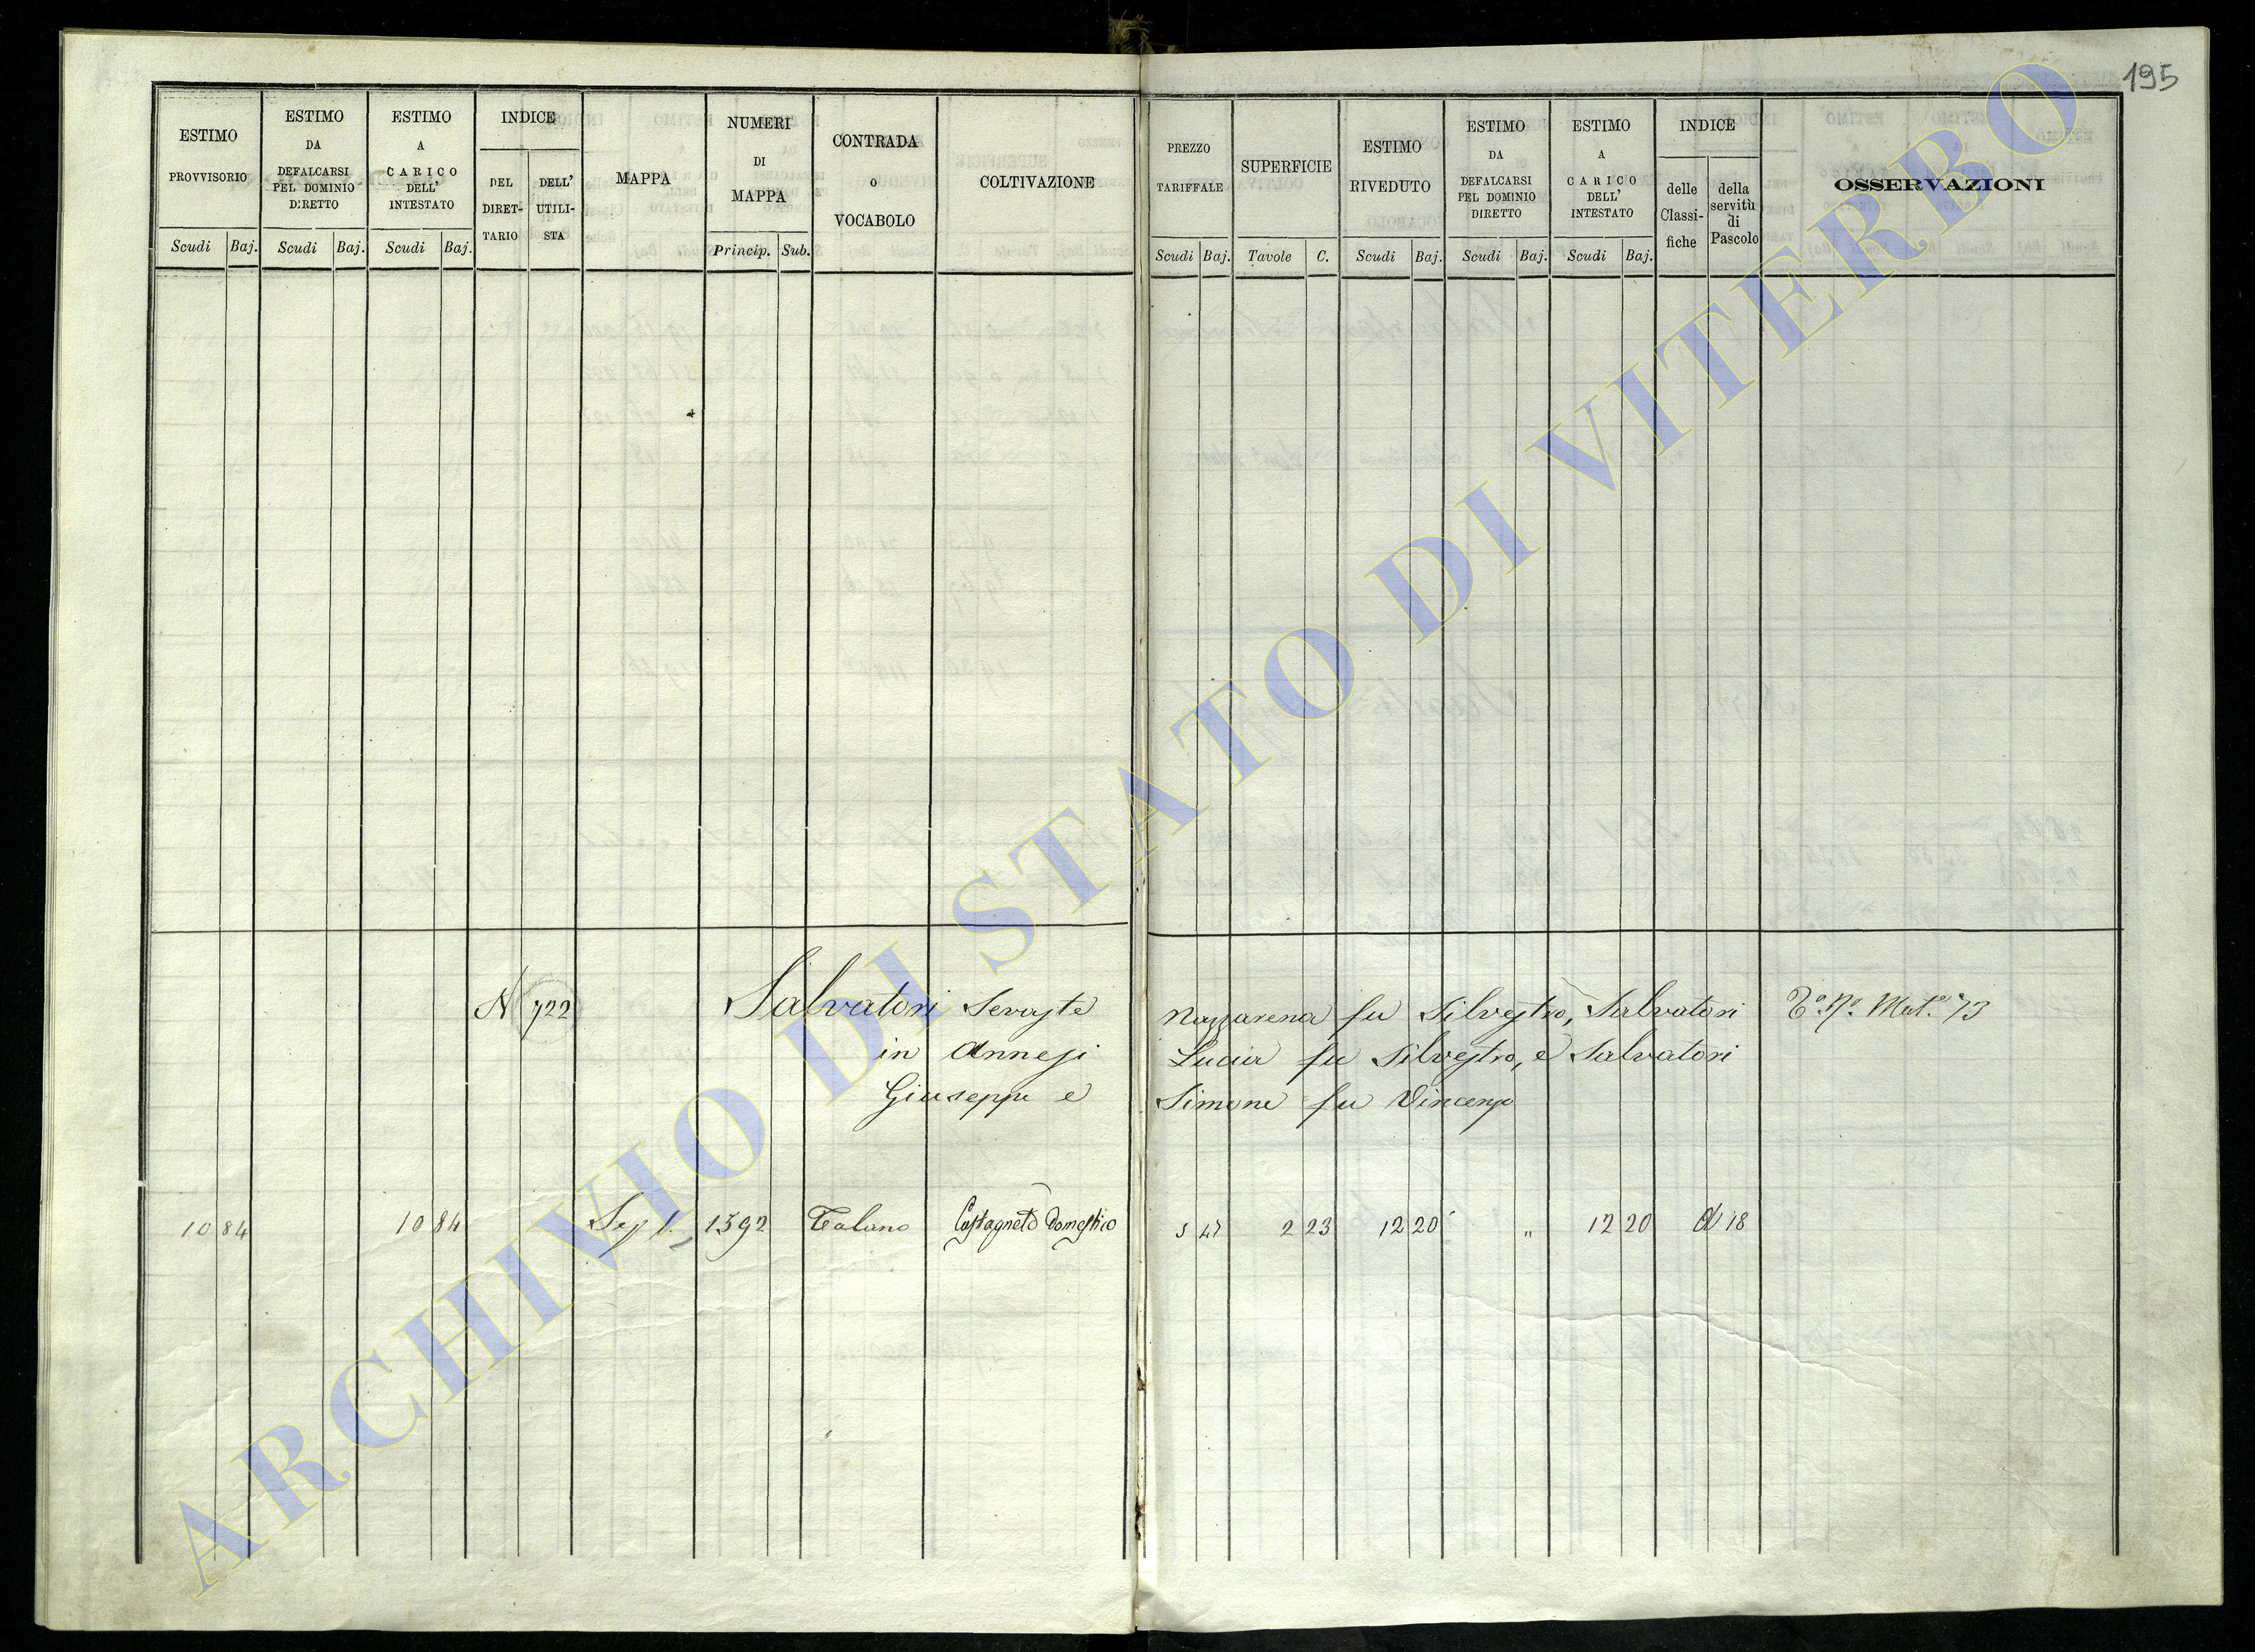 195
ESTIMO PROVVISORIO
Scudi Baj.
ESTIMO DA DEFALCARSI PEL DOMINIO DIRETTO
Scudi Baj.
ESTIMO A CARICO DELL' INTESTATO
Scudi Baj.
INDICE
DEL DIRET-TARIO
DELL' UTILI-STA
MAPPA
NUMERI DI MAPPA
Princip. Sub.
CONTRADA o VOCABOLO
COLTIVAZIONE
PREZZO TARIFFALE
Scudi Baj.
SUPERFICIE
Tavole C.
ESTIMO RIVEDUTO
Scudi Baj.
ESTIMO DA DEFALCARSI PEL DOMINIO DIRETTO
Scudi Baj.
ESTIMO A CARICO DELL' INTESTATO
Scudi Baj.
INDICE
delle Classi-fiche
della servitù di Pascolo
OSSERVAZIONI
N 722 Salvatori Nazzarena fu Silvestro, Salvatori
in Annesi Lucia fu Silvestro, e Salvatori
Giuseppe e Simone fu Vincenzo
10 84 10 84 Sez 1. 1592 Castagneto Domestico 5 47 2 23 12 20 " 12 20 18
ARCHIVIO DI STATO DI VITERBO